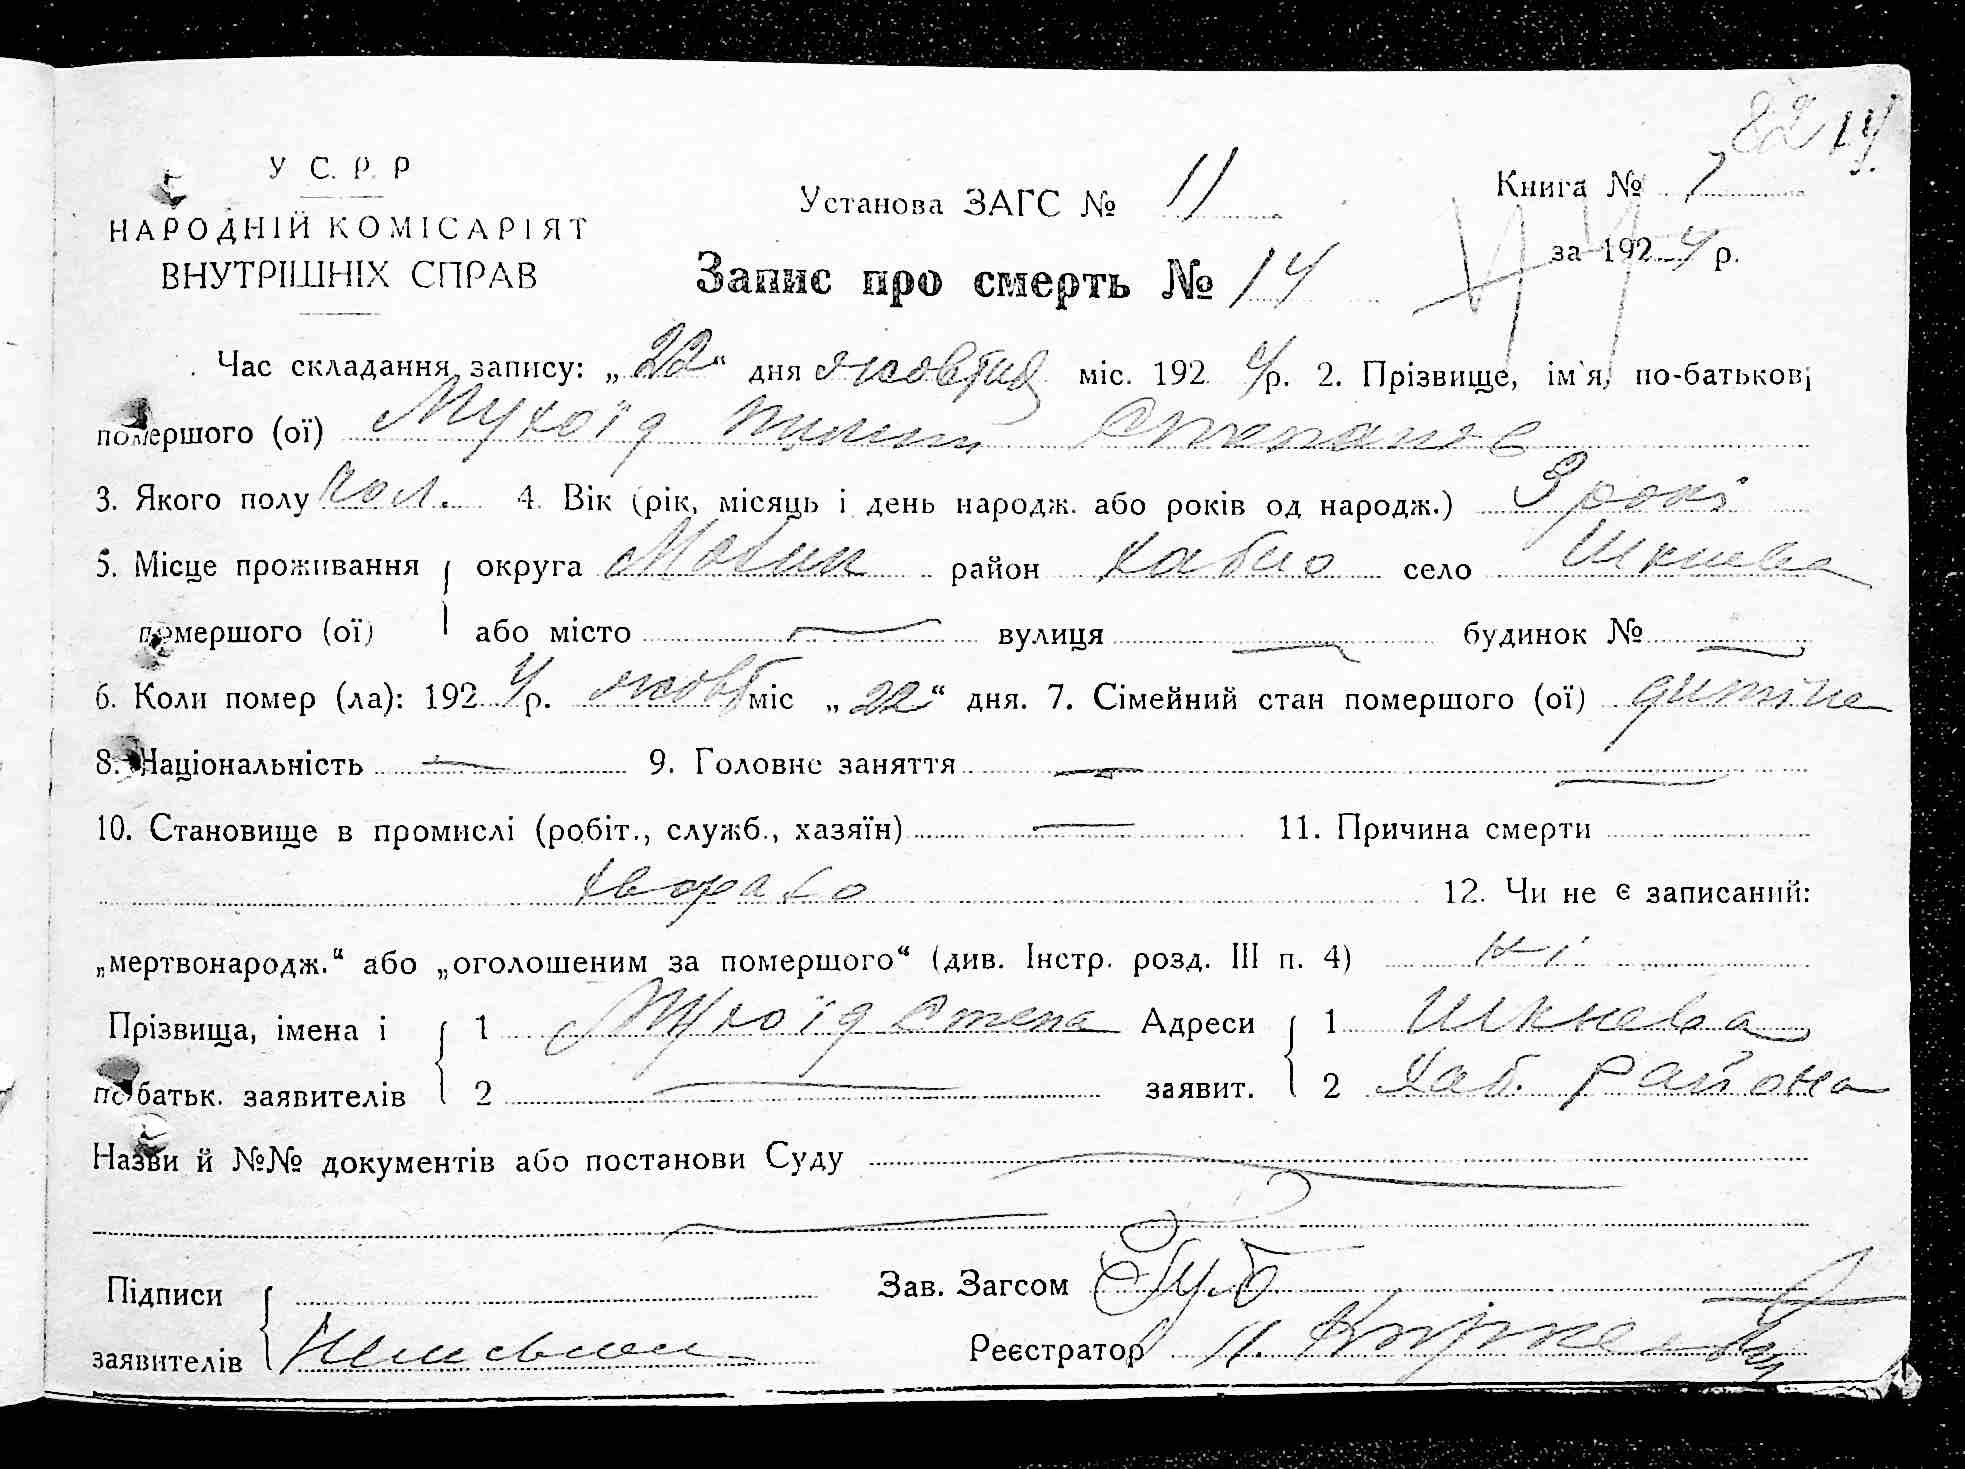 82 14
У С. Р. Р
Установа ЗАГС № 11
Книга № 7
НАРОДНІЙ КОМІСАРІЯТ
ВНУТРІШНІХ СПРАВ
Запис про смерть № 14
за 1924 р.
Час складання запису: „22“ дня жовтня міс. 1924 р. 2. Прізвище, ім'я, по-батькові
помершого (ої) Мухоїд Степанов
3. Якого полу чол. 4. Вік (рік, місяць і день народж. або років од народж.) 3 роки
5. Місце проживання округа район Хабно село Шкнева
помершого (ої) або місто — вулиця — будинок № —
6. Коли помер (ла): 1924 р. жовт міс „22“ дня. 7. Сімейний стан помершого (ої) дитина
8. Національність — 9. Головне заняття —
10. Становище в промислі (робіт., служб., хазяїн) — 11. Причина смерти
12. Чи не є записаний:
„мертвонародж.“ або „оголошеним за помершого“ (див. Інстр. розд. III п. 4) ні
Прізвища, імена і 1 Мухоїд Степа Адреси 1 Шкнева
по батьк. заявителів 2 — заявит. 2 Хаб. Района
Назви й №№ документів або постанови Суду —
Підписи Зав. Загсом
заявителів Реєстратор